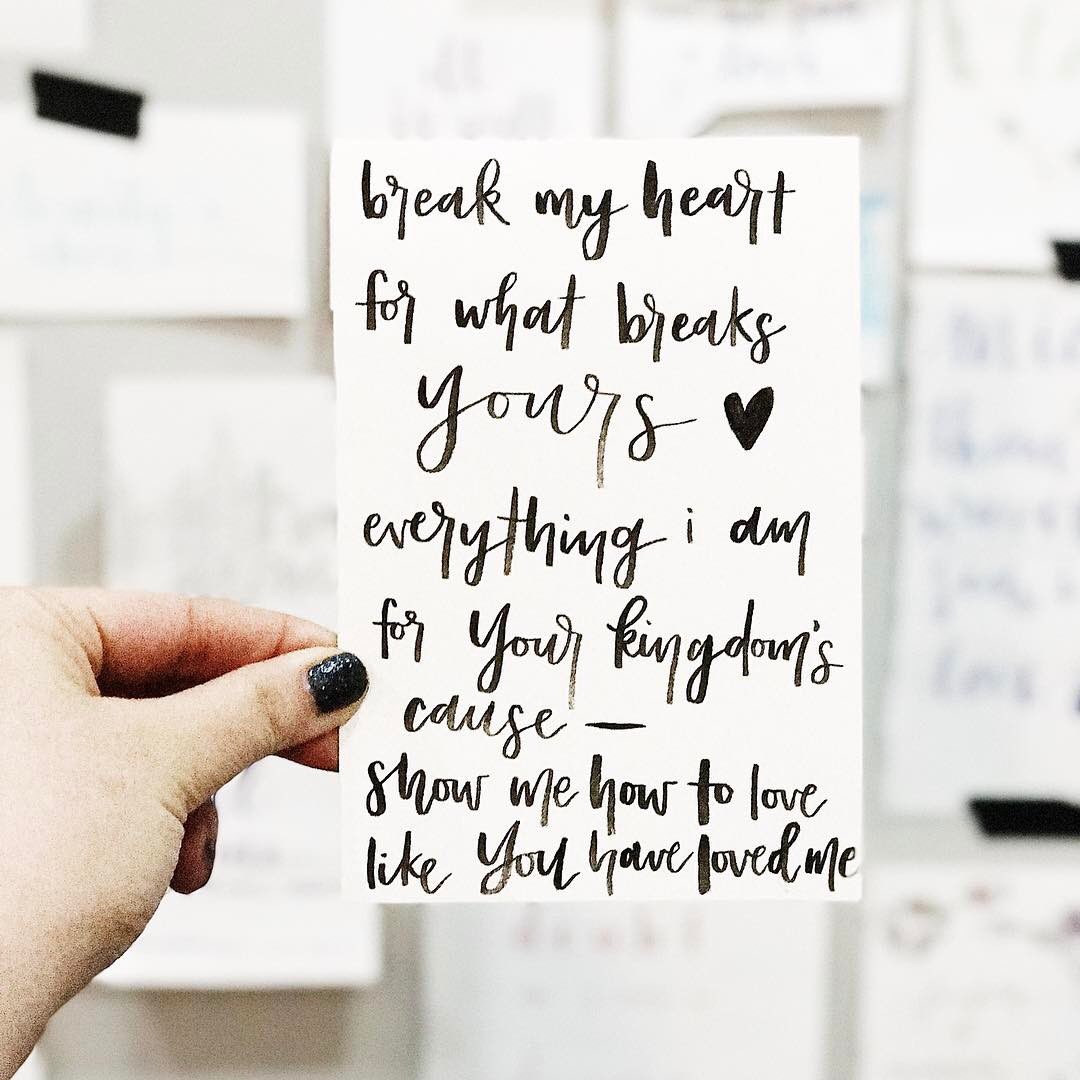 break my heart
for what breaks
yours ♥
everything i am
for Your kingdom's
cause —
show me how to love
like You have loved me